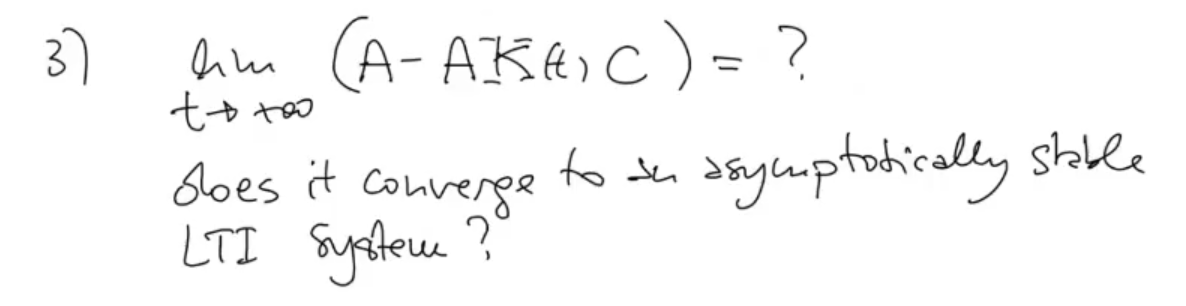 3) lim (A - AK(t)C) = ?
t→+∞
does it converge to an asymptotically stable
LTI system?